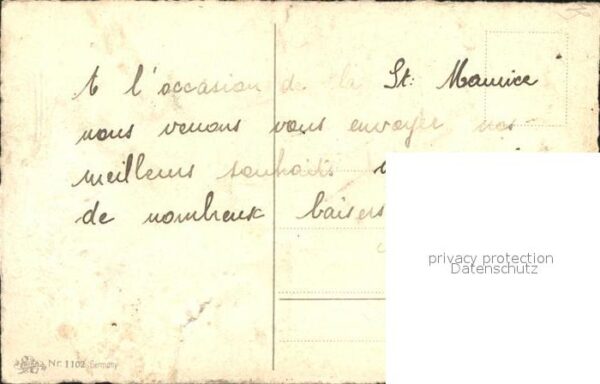 A l'occasion de la St: Maurice
nous venons vous envoyer nos
meilleurs souhaits
de nombreux baisers
privacy protection
Datenschutz
Nr. 1102 Germany